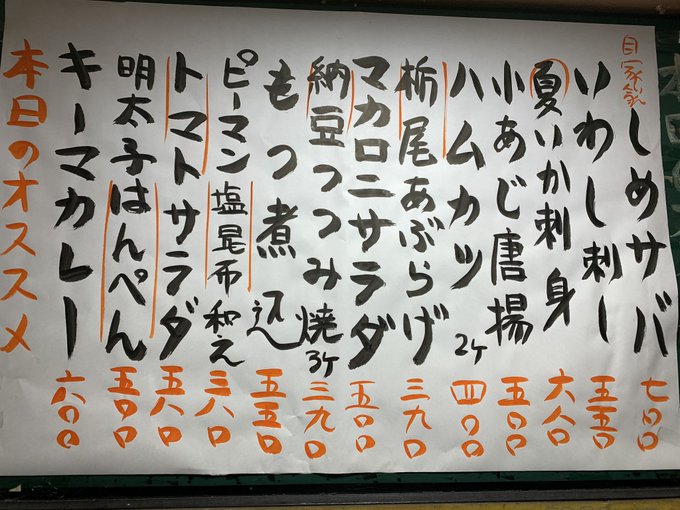 自家製 しめサバ 七〇〇
いわし刺し 五五〇
夏いか刺身 六八〇
小あじ唐揚 五〇〇
ハムカツ 2ケ 四〇〇
栃尾あぶらげ 三九〇
マカロニサラダ 五〇〇
納豆つつみ焼 3ケ 三九〇
もつ煮込 五五〇
ピーマン塩昆布和え 三八〇
トマトサラダ 五八〇
明太子はんぺん 五〇〇
キーマカレー 六〇〇
本日のオススメ